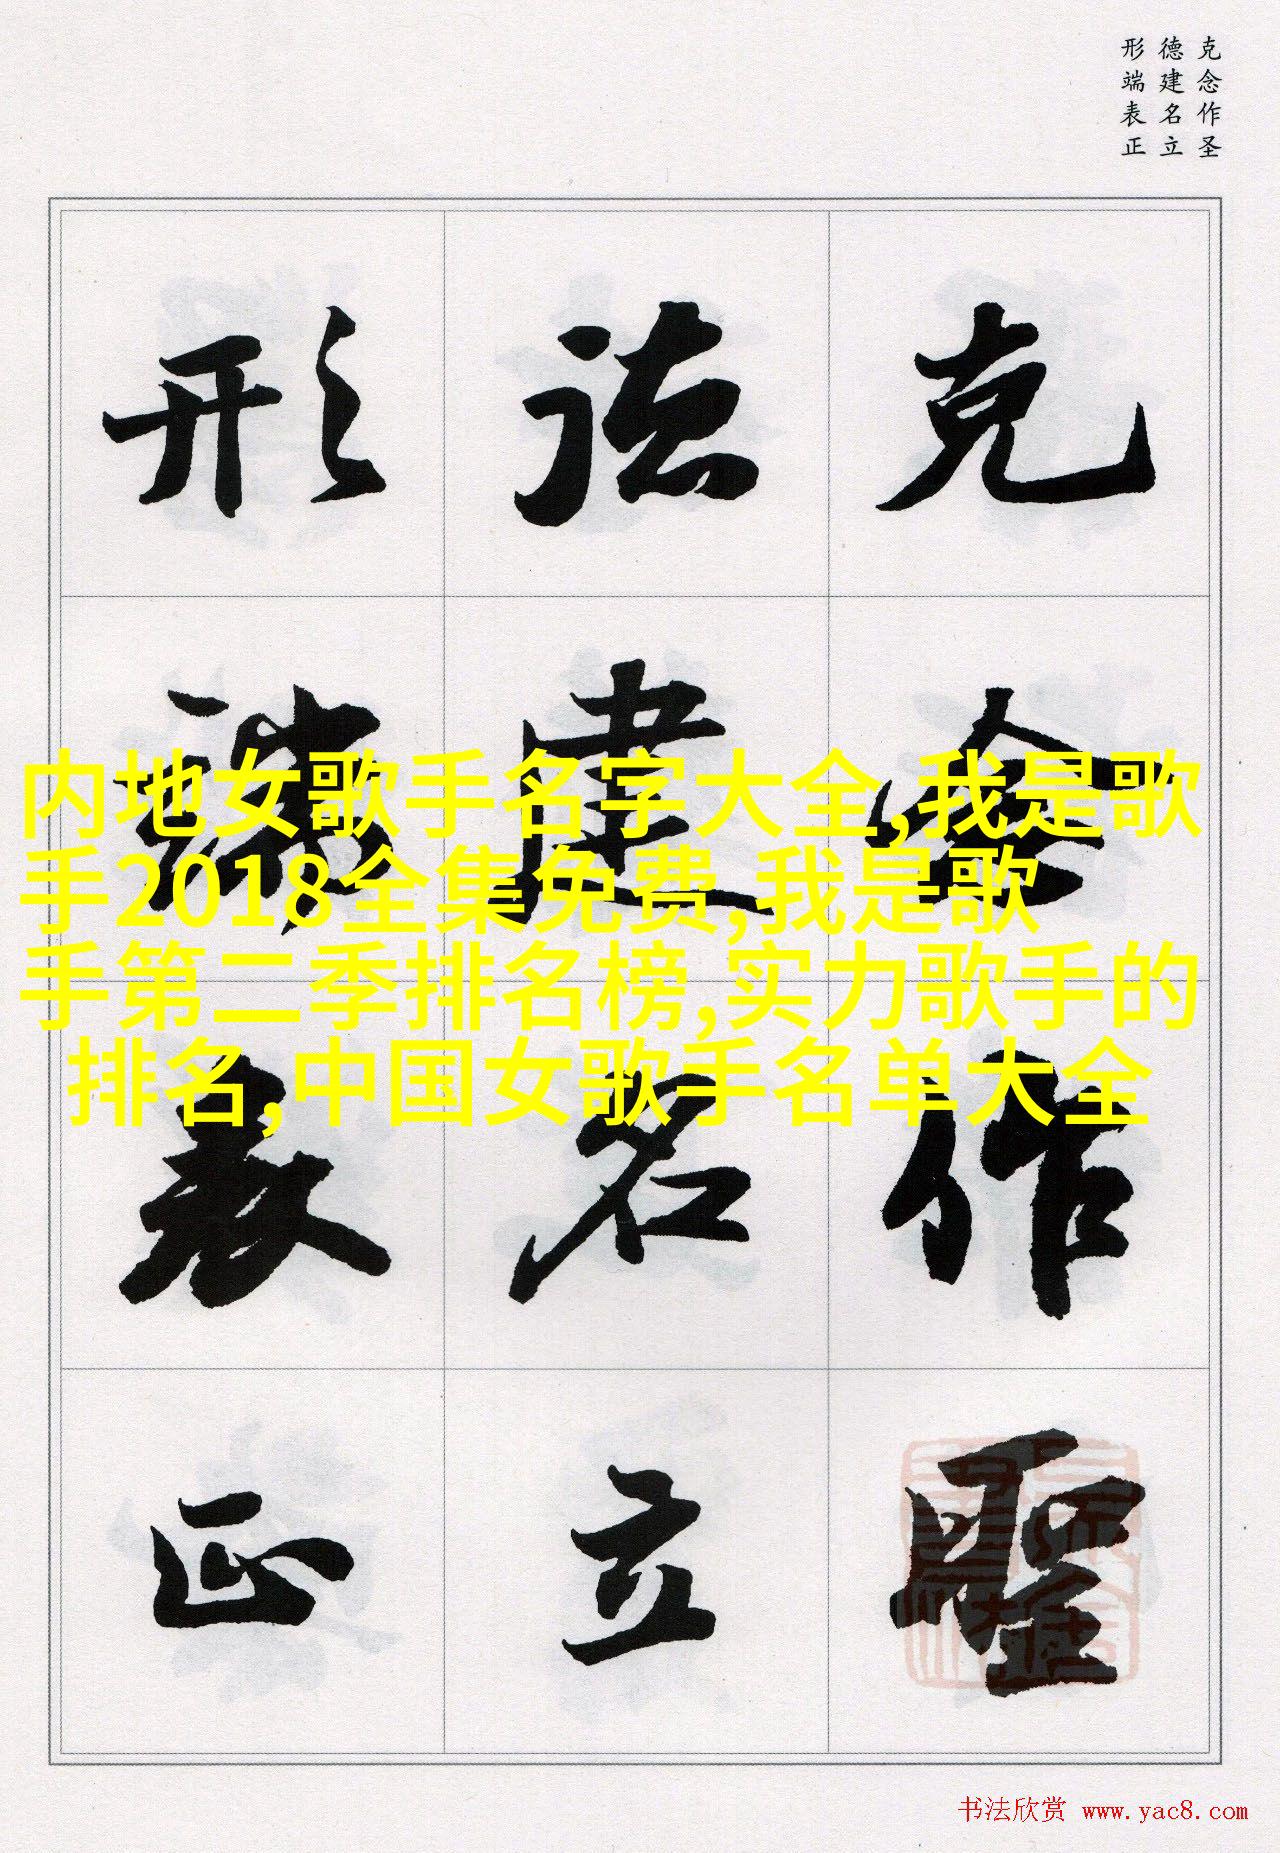 克念作圣
德建名立
形端表正
克念作聖
德建名立
形端表正
内地女歌手名字大全,我是歌
手2018全集免费,我是歌
手第二季排名榜,实力歌手的
排名,中国女歌手名单大全
书法欣赏 www.yac8.com